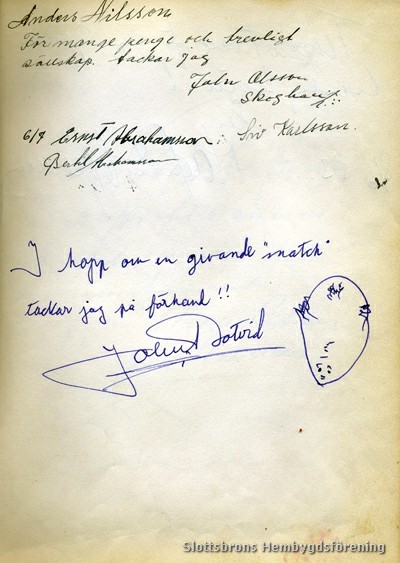 Anders Nilsson
För mange penge och trevligt
sällskap. tackar jag
John Olsson
Skoghall
6/9 Ernst Abrahamson Siv Karlsson.
Bertil Abrahamsson
I hopp om en givande "match"
tackar jag på förhand!!
Slottsbrons Hembygdsförening